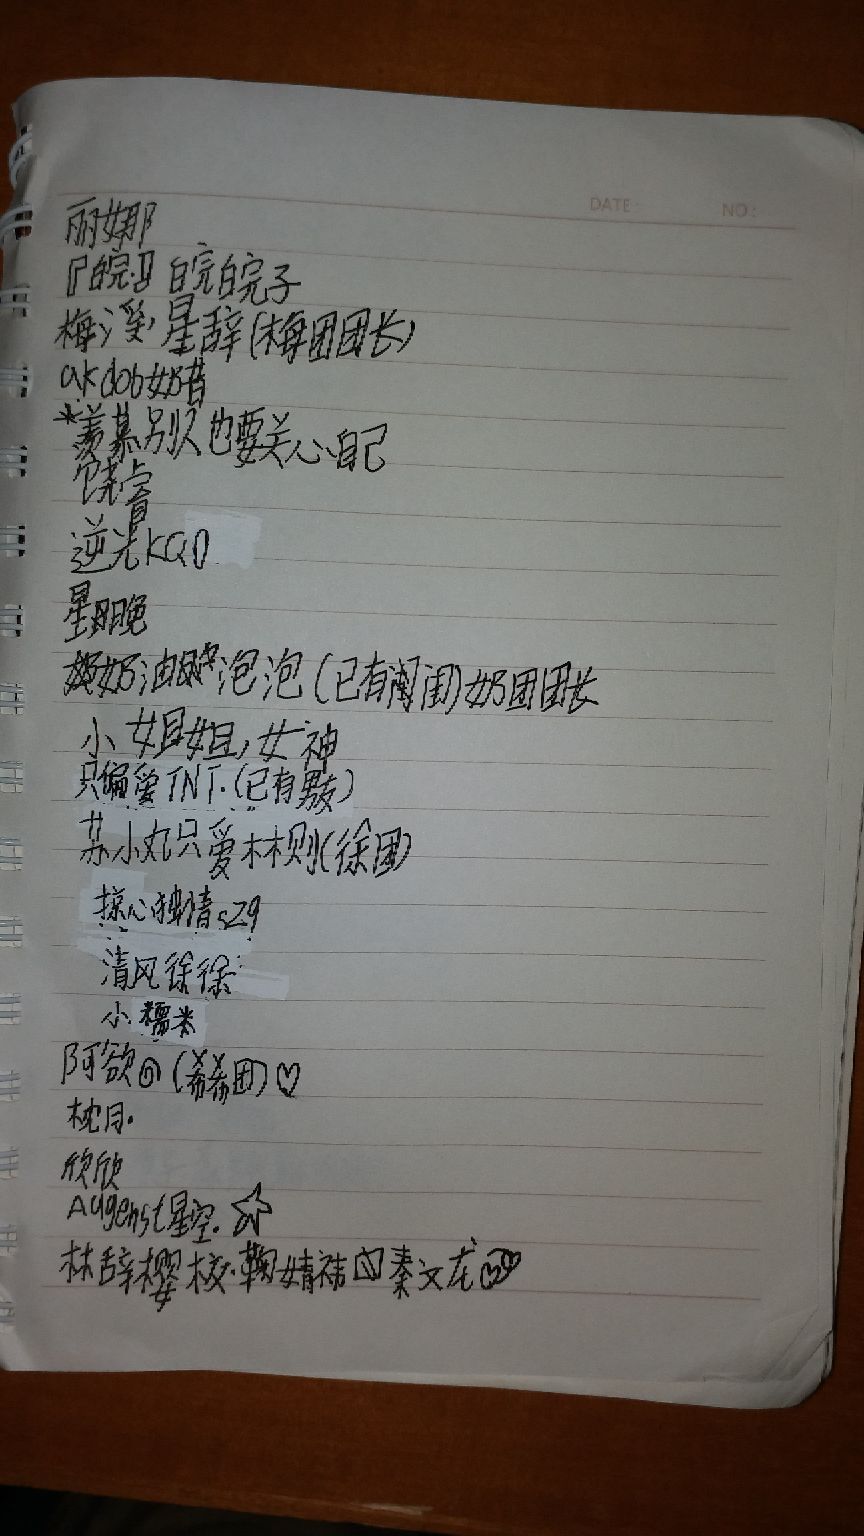 DATE: NO:
丽娜
『皖』皖皖子
梅溪,星辞(梅团团长)
akdob奶昔
*羡慕别人也要关心自己
饶睿
逆光KQD
星晚
奶油 泡泡(已有闺闺)奶团团长
小姐姐,女神
只偏爱TNT.(已有男友)
苏小丸只爱林则(徐团)
掠心独情szg
清风徐徐
小糯米
阿欲(希希团)♡
枕月.
欣欣
Augenst星空.☆
林辞樱校.鞠婧祎 秦文龙